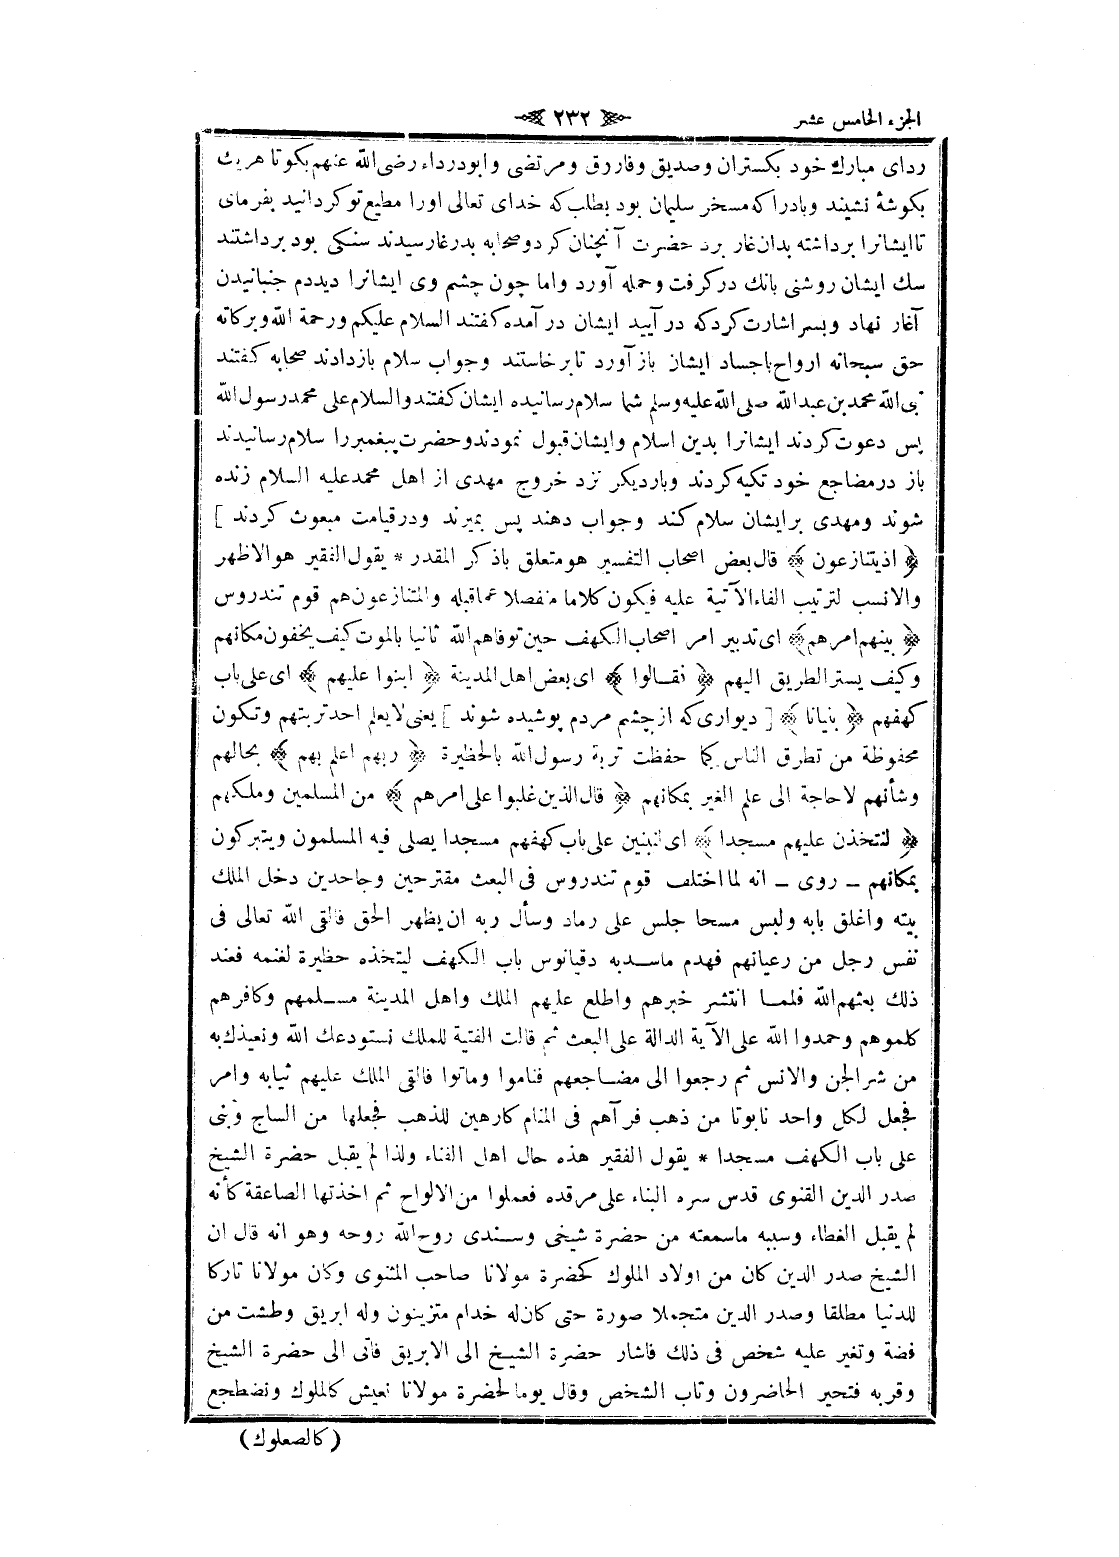 الجزء الخامس عشر ﴿ ٢٣٢ ﴾
ردای مبارك خود بكستران وصديق وفاروق ومرتضی وابودرداء رضی الله عنهم بكوتا هريك
بكوشۀ نشيند وبادرا كه مسخر سليمان بود بطلب كه خدای تعالی اورا مطيع تو كردانيد بفرمای
تا ايشانرا برداشته بدان غار برد حضرت آنچنان كرد وصحابه بدر غار رسيدند سنكی بود برداشتند
سك ايشان روشنی بانك در كرفت وحمله آورد واما چون چشم وی ايشانرا ديد دم جنبانيدن
آغاز نهاد وبسر اشارت كرد كه در آييد ايشان در آمده كفتند السلام عليكم ورحمة الله وبركاته
حق سبحانه ارواح باجساد ايشان باز آورد تا برخاستند وجواب سلام باز دادند صحابه كفتند
نبی الله محمد بن عبدالله صلی الله عليه وسلم شما سلام رسانيده ايشان كفتند والسلام علی محمد رسول الله
پس دعوت كردند ايشانرا بدين اسلام وايشان قبول نمودند وحضرت پيغمبررا سلام رسانيدند
باز در مضاجع خود تكيه كردند وبار ديكر نزد خروج مهدی از اهل محمد عليه السلام زنده
شوند ومهدی بر ايشان سلام كند وجواب دهند پس بميرند ودر قيامت مبعوث كردند ]
﴿ اذ يتنازعون ﴾ قال بعض اصحاب التفسير هو متعلق باذكر المقدر * يقول الفقير هو الاظهر
والانسب لترتيب الفاء الآتية عليه فيكون كلاما منفصلا عما قبله والمتنازعون هم قوم تندروس
﴿ بينهم امرهم ﴾ ای تدبير امر اصحاب الكهف حين توفاهم الله ثانيا بالموت كيف يخفون مكانهم
وكيف يستر الطريق اليهم ﴿ فقالوا ﴾ ای بعض اهل المدينة ﴿ ابنوا عليهم ﴾ ای علی باب
كهفهم ﴿ بنيانا ﴾ [ ديواری كه از چشم مردم پوشيده شوند ] يعنی لا يعلم احد تربتهم وتكون
محفوظة من تطرق الناس كما حفظت تربة رسول الله بالحظيرة ﴿ ربهم اعلم بهم ﴾ بحالهم
وشأنهم لا حاجة الی علم الغير بمكانهم ﴿ قال الذين غلبوا علی امرهم ﴾ من المسلمين وملكهم
﴿ لنتخذن عليهم مسجدا ﴾ ای لنبنين علی باب كهفهم مسجدا يصلی فيه المسلمون ويتبركون
بمكانهم ــ روی ــ انه لما اختلف قوم تندروس فی البعث مقترحين وجاحدين دخل الملك
بيته واغلق بابه ولبس مسحا جلس علی رماد وسأل ربه ان يظهر الحق فالقی الله تعالی فی
نفس رجل من رعيانهم فهدم ماسد به دقيانوس باب الكهف ليتخذه حظيرة لغنمه فعند
ذلك بعثهم الله فلما انتشر خبرهم واطلع عليهم الملك واهل المدينة مسلمهم وكافرهم
كلموهم وحمدوا الله علی الآية الدالة علی البعث ثم قالت الفتية للملك نستودعك الله ونعيذك به
من شر الجن والانس ثم رجعوا الی مضاجعهم فناموا وماتوا فالقی الملك عليهم ثيابه وامر
فجعل لكل واحد تابوتا من ذهب فرآهم فی المنام كارهين للذهب فجعلها من الساج وبنی
علی باب الكهف مسجدا * يقول الفقير هذه حال اهل الفناء ولذا لم يقبل حضرة الشيخ
صدر الدين القنوی قدس سره البناء علی مرقده فعملوا من الالواح ثم اخذتها الصاعقة كأنه
لم يقبل الغطاء وسببه ماسمعته من حضرة شيخی وسندی روح الله روحه وهو انه قال ان
الشيخ صدر الدين كان من اولاد الملوك كحضرة مولانا صاحب المثنوی وكان مولانا تاركا
للدنيا مطلقا وصدر الدين متجملا صورة حتی كان له خدام متزينون وله ابريق وطشت من
فضة وتغير عليه شخص فی ذلك فاشار حضرة الشيخ الی الابريق فأتی الی حضرة الشيخ
وقربه فتحير الحاضرون وتاب الشخص وقال يوما لحضرة مولانا نعيش كالملوك ونضطجع
(كالصعلوك)